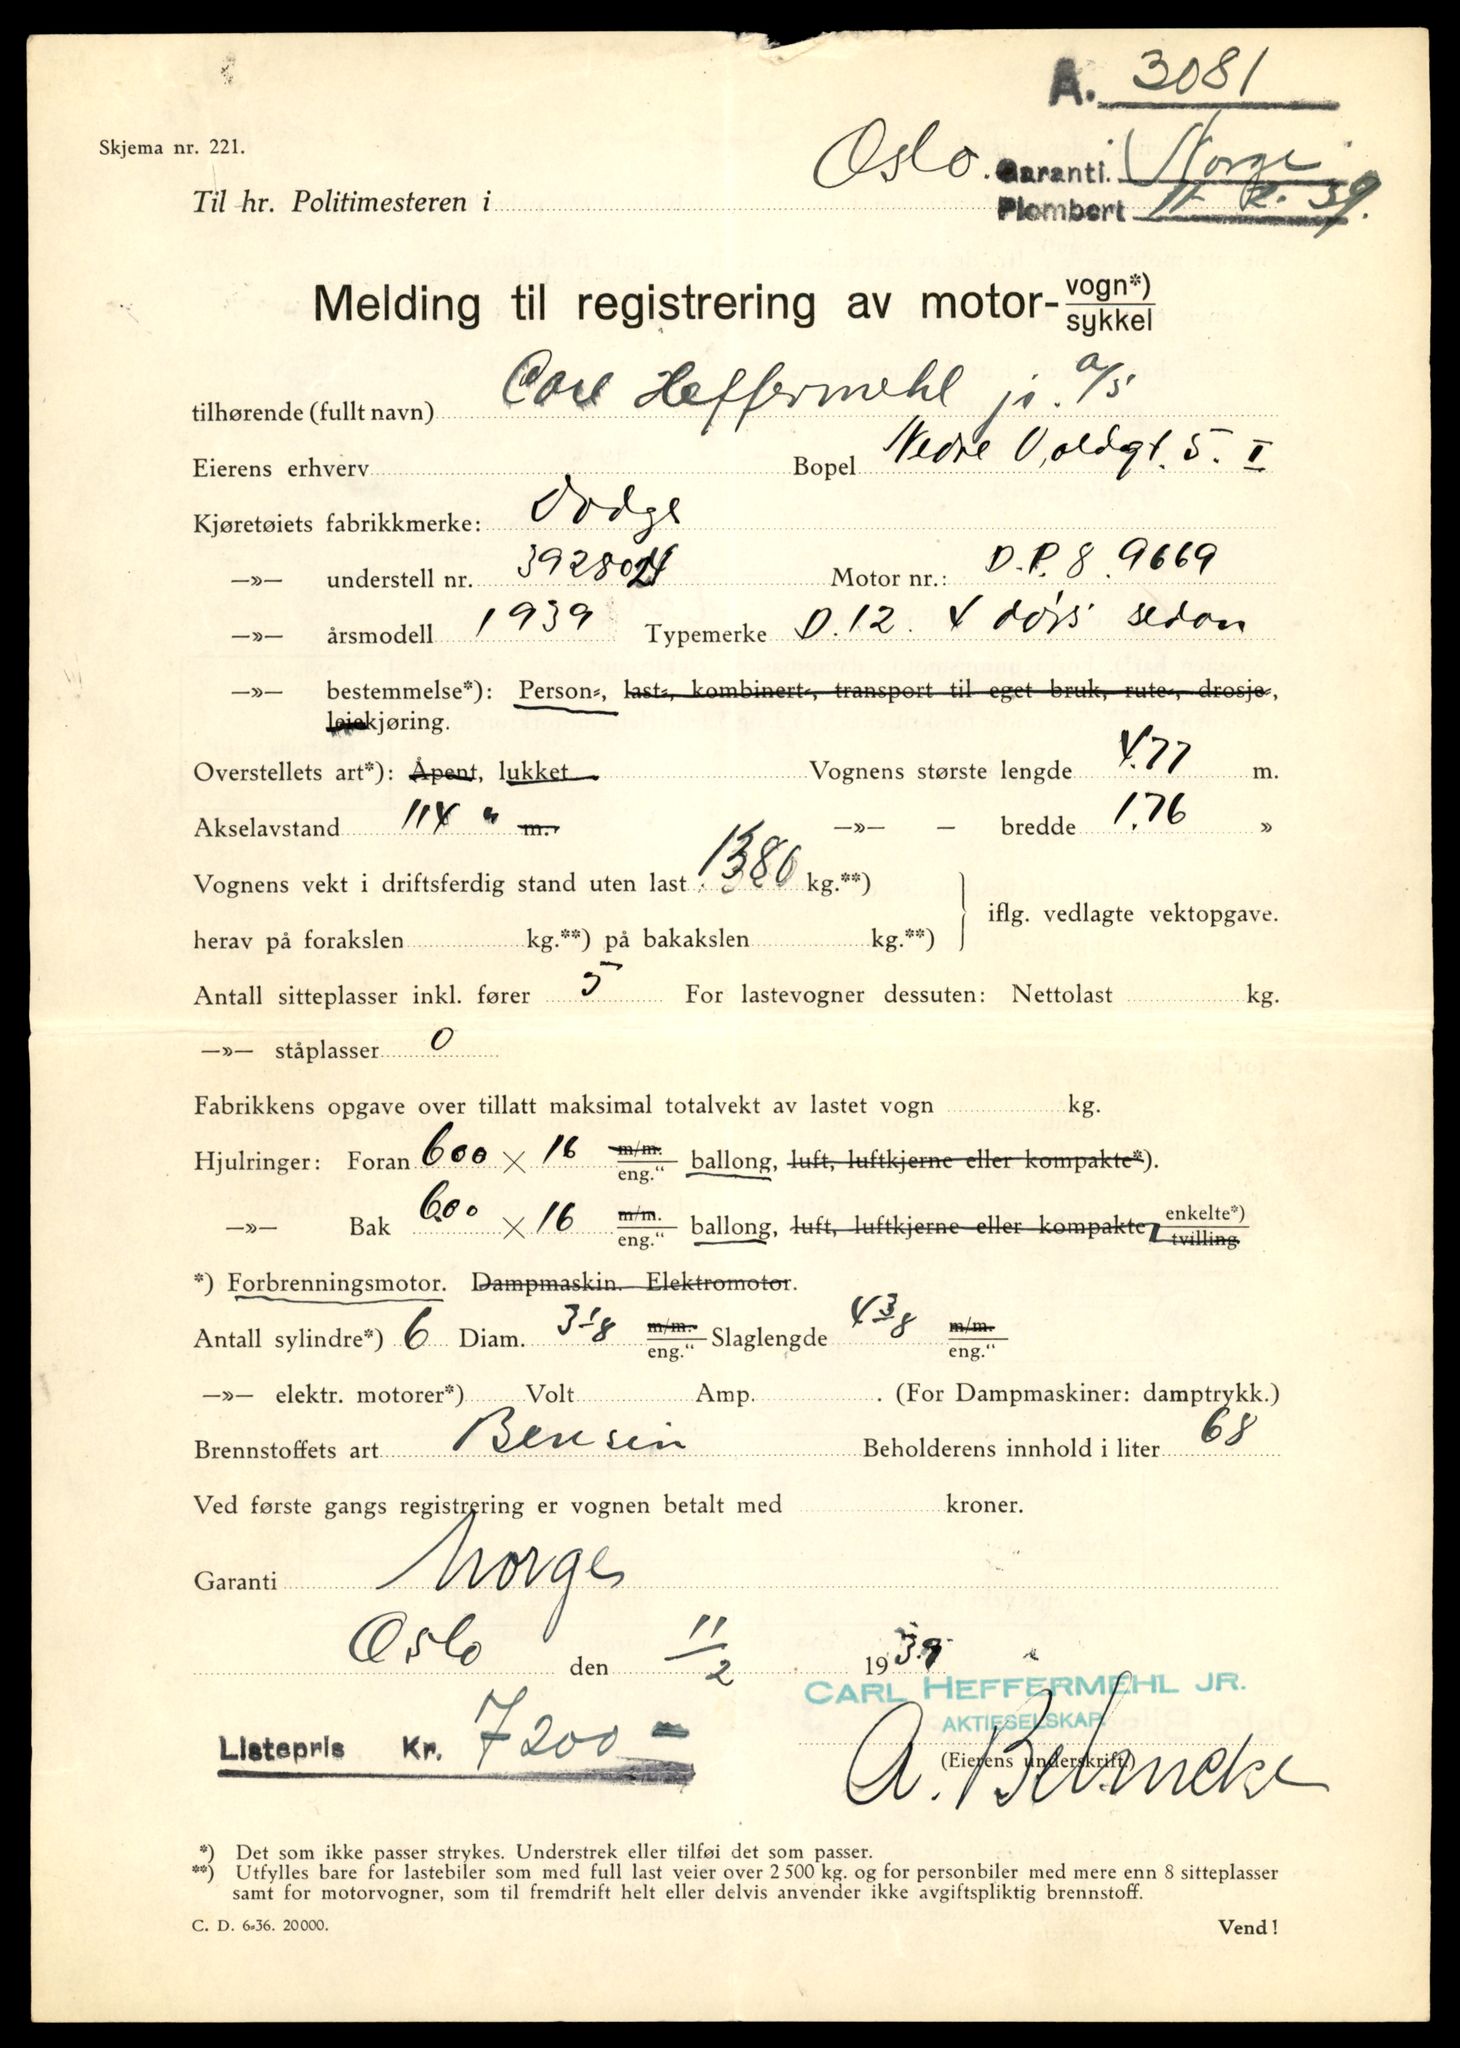 A. 3081
Skjema nr. 221.
Oslo. Garanti. Norge
Til hr. Politimesteren i Plombert 11. 2. 39.
Melding til registrering av motor- vogn*) sykkel
tilhørende (fullt navn) Carl Heffermehl jr. a/s
Eierens erhverv Bopel Nedre Voldgt. 5. II
Kjøretøiets fabrikkmerke: Dodge
—»— understell nr. Motor nr.: D.P. 8. 9669
—»— årsmodell 1939 Typemerke D.12. 4 dørs sedan
—»— bestemmelse*): Person-, last-, kombinert-, transport til eget bruk, rute-, drosje-,
leiekjøring.
Overstellets art*): Åpent, lukket Vognens største lengde 4.77 m.
Akselavstand 114 " m. —»— — bredde 1.76 »
Vognens vekt i driftsferdig stand uten last 1380 kg.**)
iflg. vedlagte vektopgave.
herav på forakslen kg.**) på bakakslen kg.**)
Antall sitteplasser inkl. fører 5 For lastevogner dessuten: Nettolast kg.
—»— ståplasser 0
Fabrikkens opgave over tillatt maksimal totalvekt av lastet vogn kg.
Hjulringer: Foran 600 × 16 m/m. eng." ballong, luft, luftkjerne eller kompakte*).
—»— Bak 6.00 × 16 m/m. eng." ballong, luft, luftkjerne eller kompakte, enkelte*) tvilling
*) Forbrenningsmotor. Dampmaskin. Elektromotor.
Antall sylindre*) 6 Diam. 3 1/8 m/m. eng." Slaglengde 4 3/8 m/m. eng."
—»— elektr. motorer*) Volt Amp. . (For Dampmaskiner: damptrykk.)
Brennstoffets art Bensin Beholderens innhold i liter 68
Ved første gangs registrering er vognen betalt med kroner.
Garanti Norges
Oslo den 11/2 1939
CARL HEFFERMEHL JR.
AKTIESELSKAP.
Listepris Kr. 7200 =
(Eierens underskrift.)
A.
*) Det som ikke passer strykes. Understrek eller tilføi det som passer.
**) Utfylles bare for lastebiler som med full last veier over 2 500 kg. og for personbiler med mere enn 8 sitteplasser
samt for motorvogner, som til fremdrift helt eller delvis anvender ikke avgiftspliktig brennstoff.
C. D. 6-36. 20000. Vend!